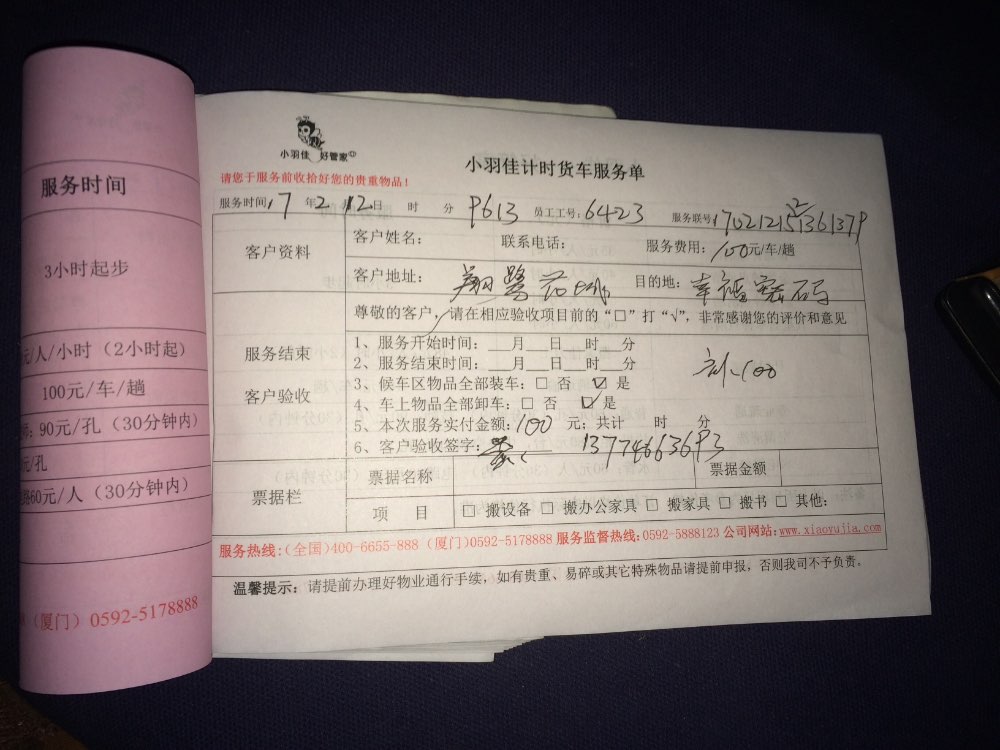 服务时间
3小时起步
元/人/小时（2小时起）
100元/车/趟
90元/孔（30分钟内）
元/孔
60元/人（30分钟内）
（厦门）0592-5178888
小羽佳 好管家
小羽佳计时货车服务单
请您于服务前收拾好您的贵重物品！
服务时间 17 年 2 月 12 日 时 分 员工工号：6423 服务联号：
客户资料
客户姓名： 联系电话： 服务费用：100元/车/趟
客户地址：翔鹭花城 目的地：幸福
尊敬的客户，请在相应验收项目前的“□”打“√”，非常感谢您的评价和意见
服务结束
客户验收
1、服务开始时间：___月___日___时___分
2、服务结束时间：___月___日___时___分
3、候车区物品全部装车：□ 否 ☑ 是
4、车上物品全部卸车：□ 否 ☑ 是
5、本次服务实付金额：100 元；共计 时 分
6、客户验收签字：
100
票据栏
票据名称 票据金额
项 目 □ 搬设备 □ 搬办公家具 □ 搬家具 □ 搬书 □ 其他：
服务热线：（全国）400-6655-888（厦门）0592-5178888 服务监督热线：0592-5888123 公司网站：www.xiaoyujia.com
温馨提示：请提前办理好物业通行手续，如有贵重、易碎或其它特殊物品请提前申报，否则我司不予负责。